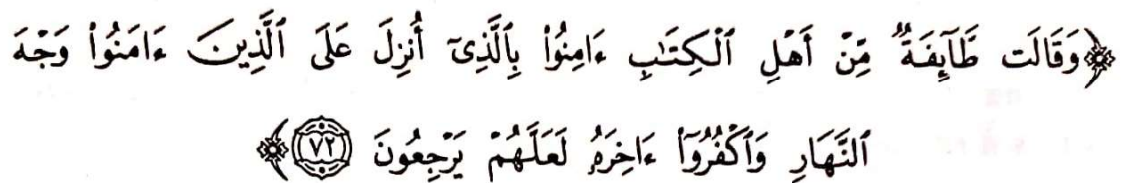 ﴿وَقَالَت طَّآئِفَةٌ مِّنْ أَهْلِ ٱلْكِتَٰبِ ءَامِنُوا۟ بِٱلَّذِىٓ أُنزِلَ عَلَى ٱلَّذِينَ ءَامَنُوا۟ وَجْهَ
ٱلنَّهَارِ وَٱكْفُرُوٓا۟ ءَاخِرَهُۥ لَعَلَّهُمْ يَرْجِعُونَ ٧٢﴾